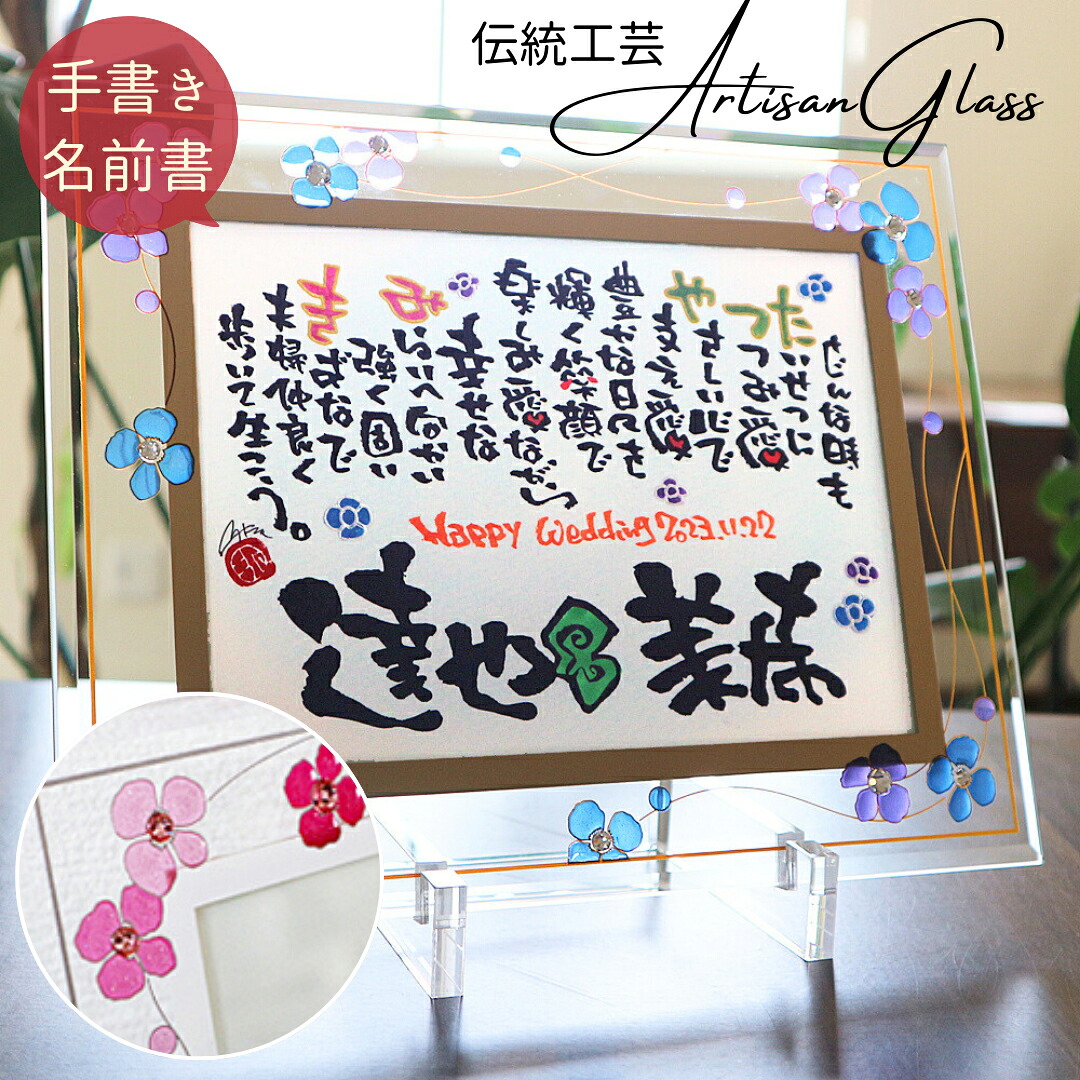 手書き
名前書
伝統工芸
Artisan Glass
どんな時も
たいせつに
つつみ愛
やさしい心で
支え愛
豊かな日々を
輝く笑顔で
楽しみ愛ながら
幸せな
みらいへ向かい
強く固い
きずなで
夫婦仲良く
歩いて生こう。
Happy Wedding 2023.11.22
達也 美希